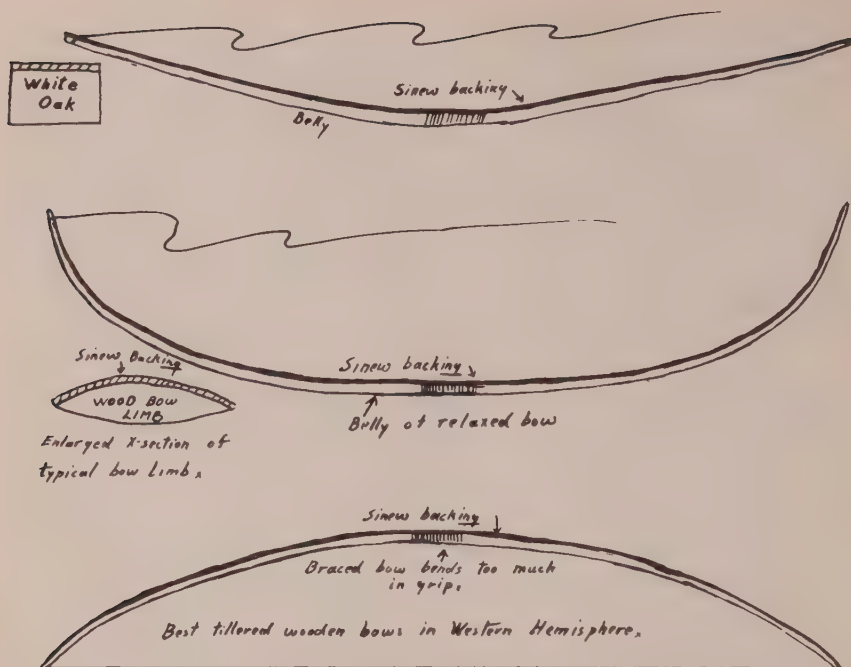 White
Oak
Sinew backing
Belly
Sinew Backing
WOOD BOW
LIMB
Enlarged X-section of
typical bow Limb.
Sinew backing
Belly of relaxed bow
Sinew backing
Braced bow bends too much
in grip.
Best tillered wooden bows in Western Hemisphere.